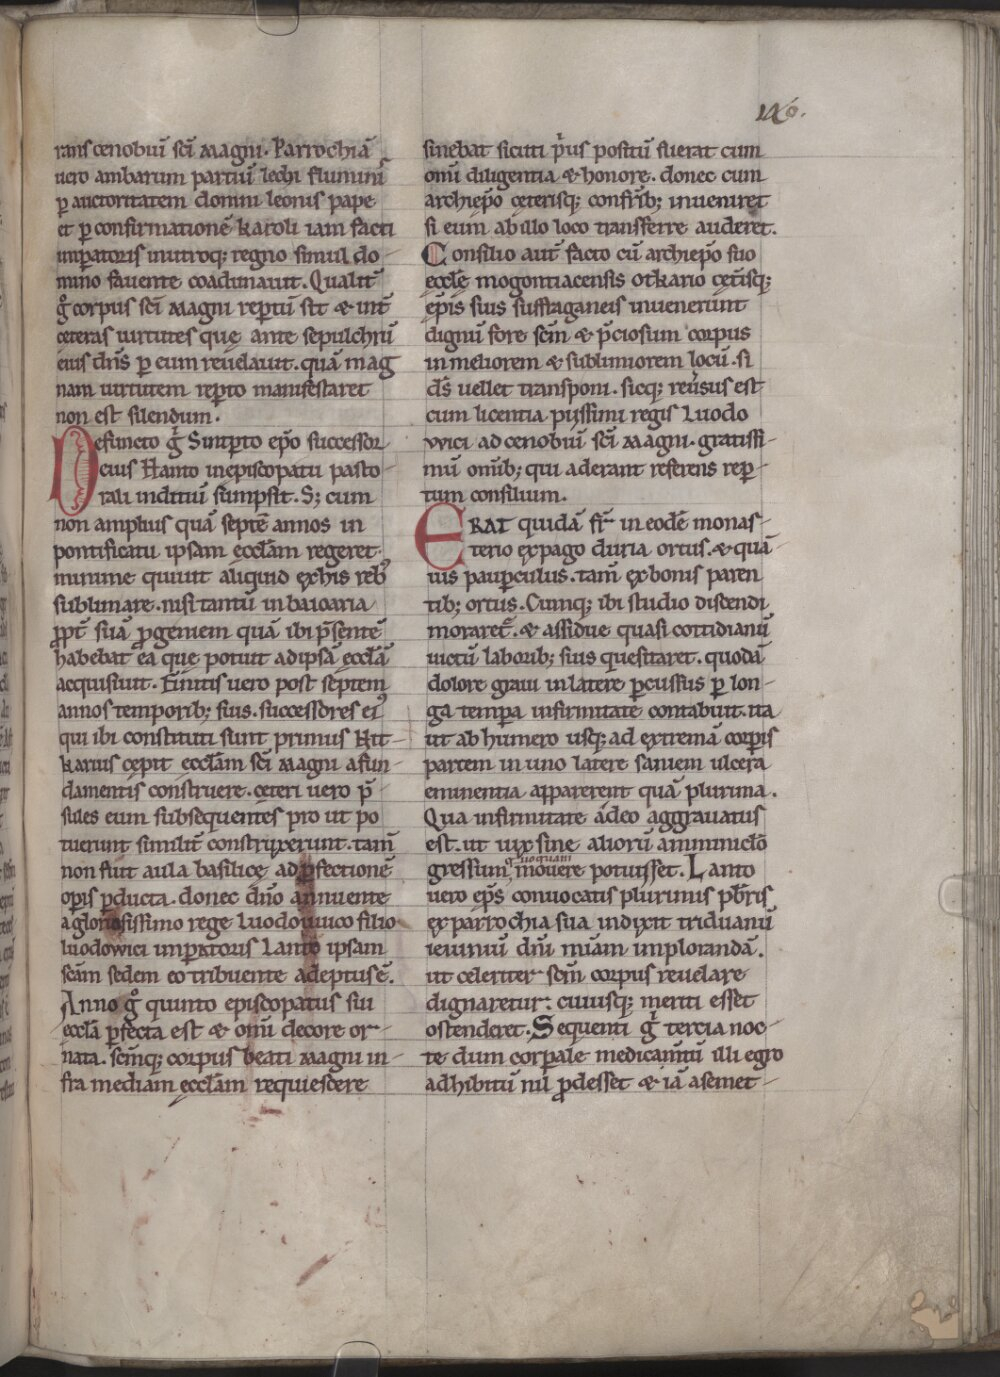 186.
rans cenobiū sc̄i magni. Parrochiā
uero ambarum partiū lechi fluminis
ꝑ auctoritatem domni leonis pape
et ꝑ confirmationē karoli iam facti
imꝑatoris inutroq; regno simul do-
mino fauente coadunauit. Qualit̄
g̊ corpus sc̄i magni reptū sit & int̄
ceteras uirtutes que ante sepulchrū
eius dn̄s ꝑ eum reuelauit. quā mag
nam uirtutem reꝑto manifestaret
non est silendum.
Defuncto g̊ Sintꝑto ep̄o successor
eius Hanto inepiscopatu pasto-
rali inditiū sumpsit. S; cum
non amplius quā septē annos in
pontificatu ipsam eccl̄am regeret.
minime quiuit aliquid exhis rebꝰ
sublimare. nisi tantū inbaioaria
ꝓpt̄ suā ꝓgeniem quā ibi p̄sentē
habebat ea que potuit adipsā eccl̄ā
acquisiuit. Finitis uero post septem
annos temporib; suis. successores eiꝰ
qui ibi constituti sunt primus Nit-
karius cepit eccl̄am sc̄i magni afun-
damentis construere. ceteri uero p̄-
sules eum subsequentes pro ut po
tuerunt similit̄ construxerunt. tam̄
non fuit aula basilice adꝑfectionē
oꝑis ꝑducta. donec dn̄o annuente
agloriosissimo rege Luodouuico filio
luodowici imperatoris Lanto ipsam
sc̄am sedem eo tribuente adeptus ē.
Anno g̊ quinto episcopatus sui
eccl̄a ꝑfecta est & omī decore or-
nata. sc̄mq; corpus beati magni in-
fra mediam eccl̄am requiescere
sinebat sicuti p̊us positū fuerat cum
omī diligentia & honore. donec cum
archiep̄o ceterisq; confr̄ib; inueniret
si eum abillo loco transferre auderet.
Consilio aut̄ facto cū archiep̄o suo
eccl̄e mogontiacensis otkario cet̄isq;
ep̄is suis suffraganeis inuenerunt
dignū fore sc̄m & p̄ciosum corpus
in meliorem & sublimiorem locū. si
ds̄ uellet transponi. sicq; reū̄sus est
cum licentia piissimi regis Luodo
wici ad cenobiū sc̄i magni. gratissi-
mū omīb; qui aderant referens rep-
tum consilium.
ERAT quidā fr̄ in eodē monas-
terio expago duria ortus. & quā-
uis pauꝑculus. tam̄ exbonis paren
tib; ortus. Cumq; ibi studio discendi
moraret̄. & assidue quasi cottidianū
uictū laborib; suis quesitaret. quodā
dolore graui inlatere ꝑcussus ꝑ lon-
ga temꝑa infirmitate contabuit. ita
ut ab humero usq; ad extremā corꝑis
partem in uno latere saniem ulcera
eminentia apparerent quā plurima.
Qua infirmitate adeo aggrauatus
est. ut uix sine aliorū amminiclo
gressum quoquam mouere potuisset. Lanto
uero ep̄s conuocatis plurimis pb̄ris
exparrochia sua indixit triduanū
ieiuniū dn̄i miam implorandā.
ut celeriter sc̄m corpus reuelare
dignaretur. cuiusq; meriti esset
ostenderet. Sequenti g̊ tercia noc-
te dum corꝑale medicam̄tū illi egro
adhibitū nil ꝓdesset & iā asemet-